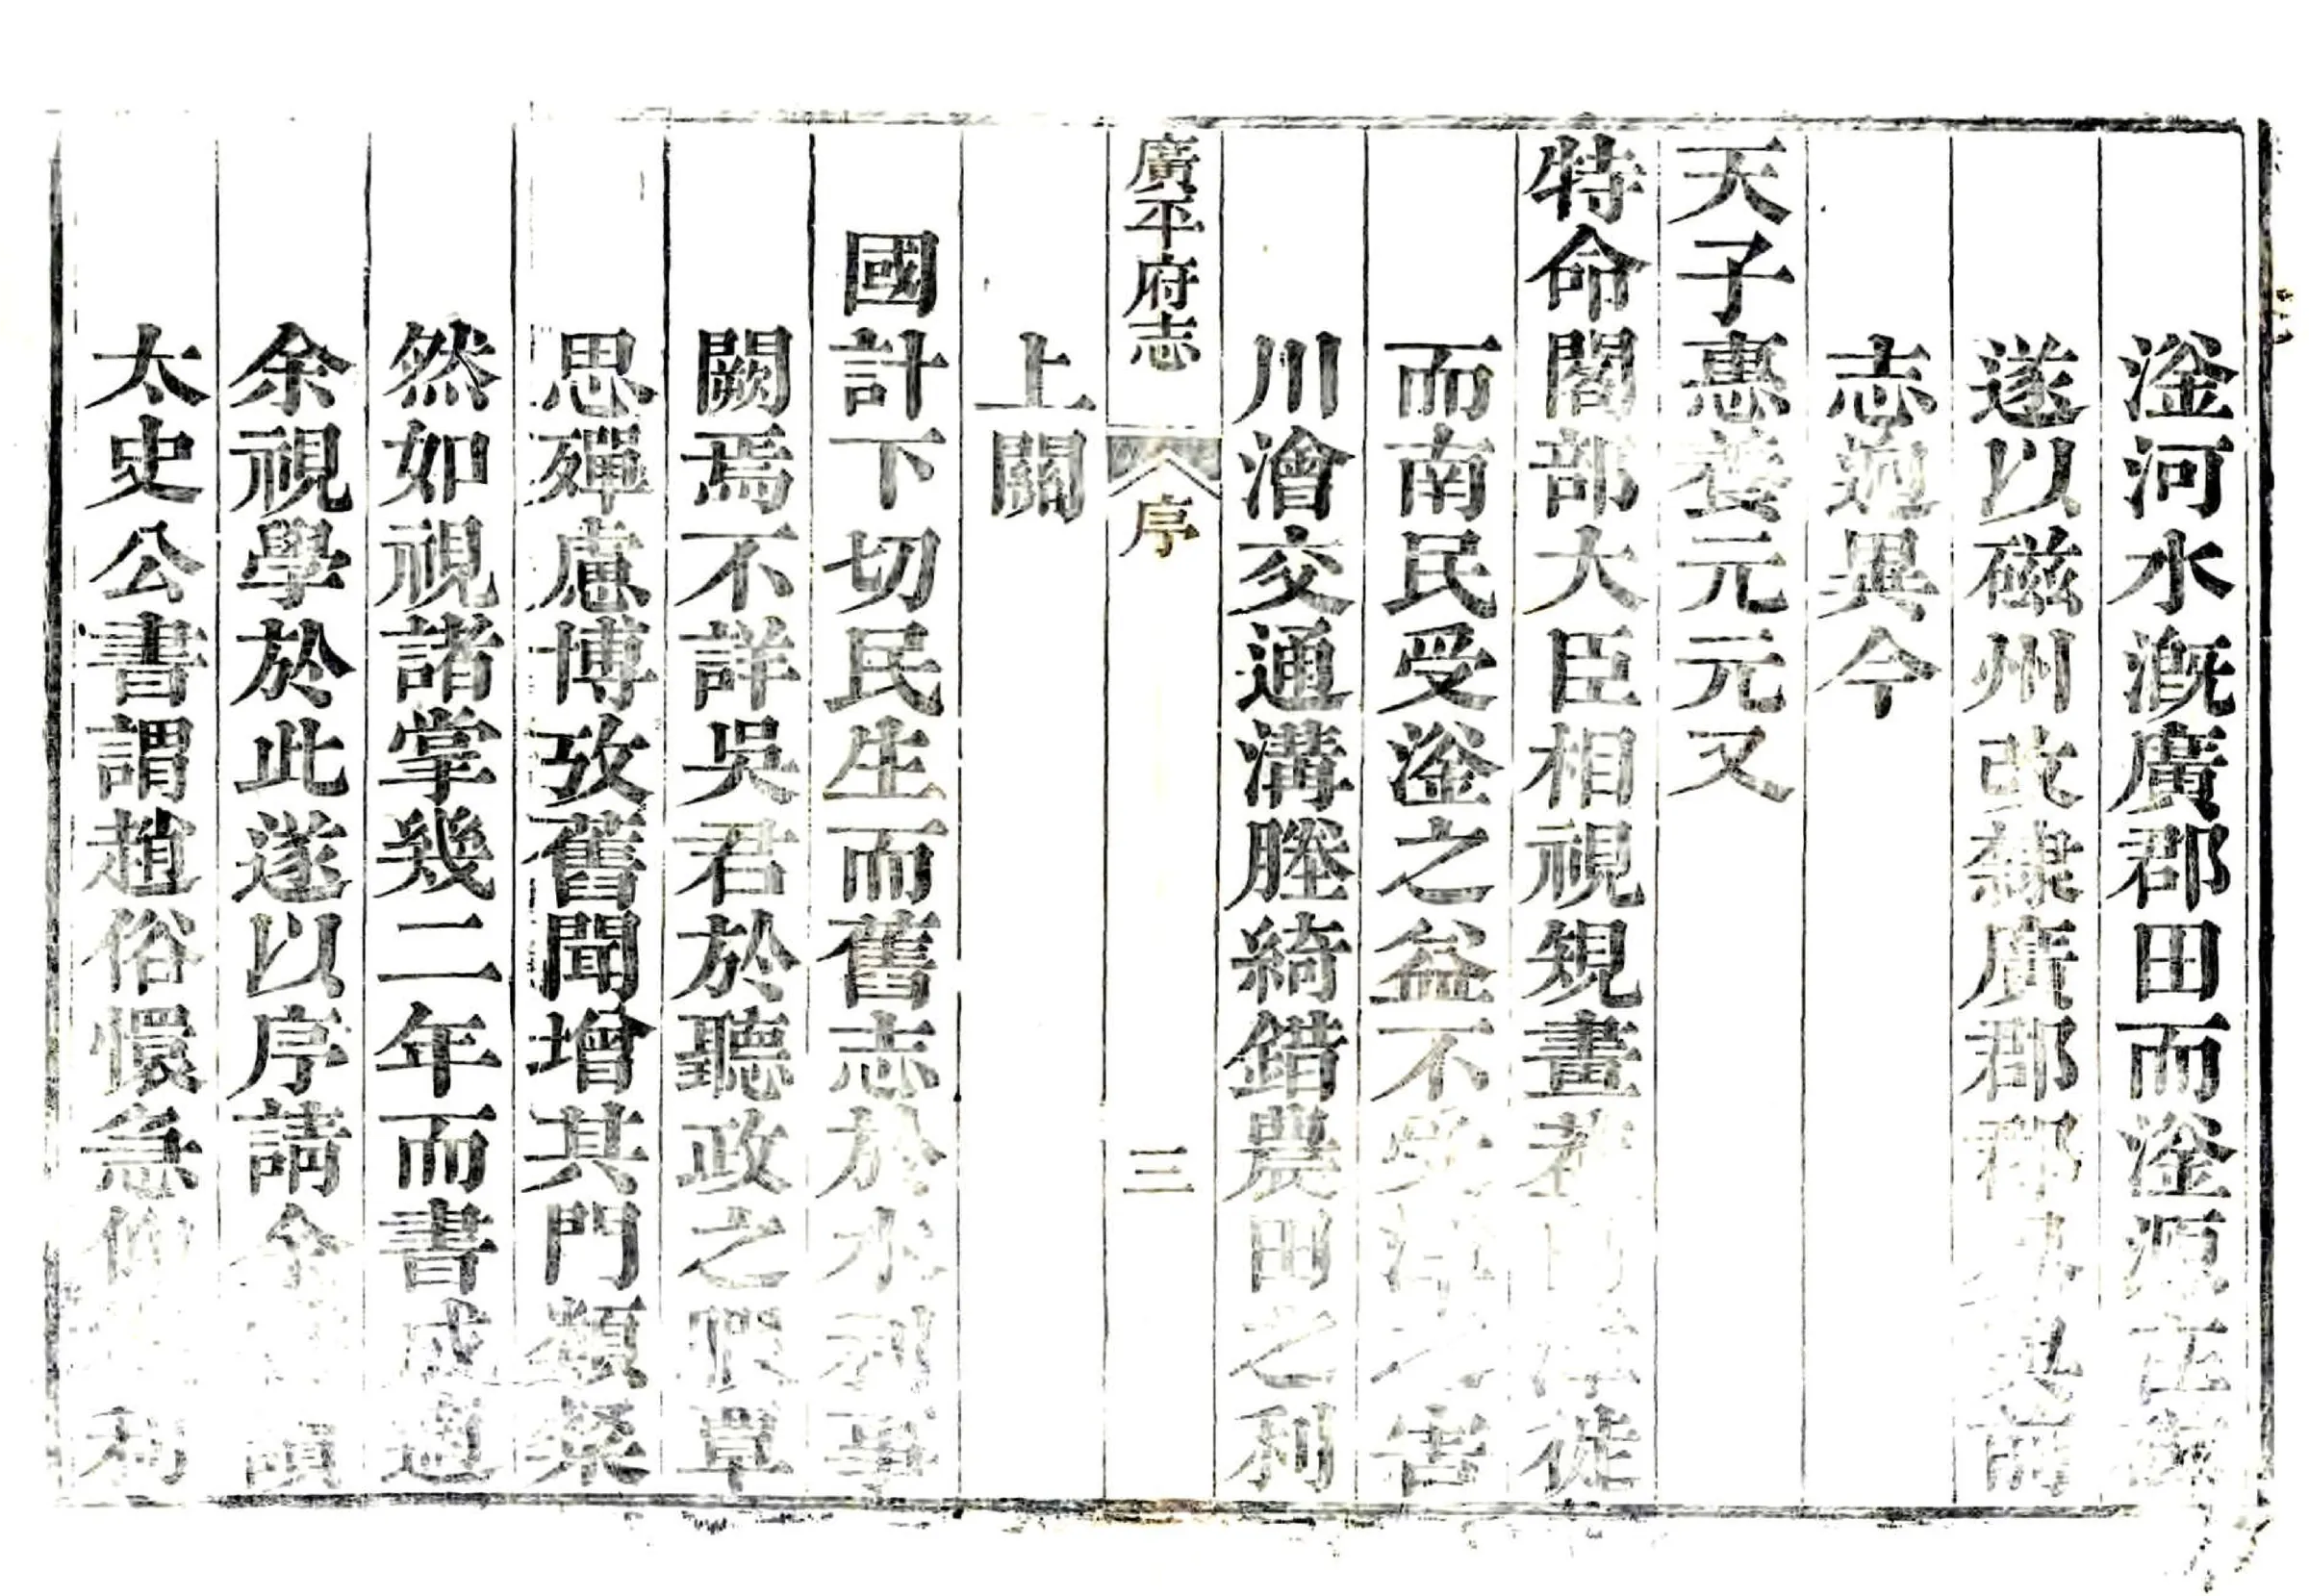 滏河水漑廣郡田而滏源在
遂以磁州改隸廣郡郡
志逈異今
天子惠養元元又
特命閣部大臣相視規畫
徒
而南民受滏之益不受漳之害
川澮交通溝塍綺錯農田之利
廣平府志 序 三
上關
國計下切民生而舊志於水利事
闕焉不詳吳君於聽政之暇覃
思殫慮博攷舊聞增其門類粲
然如視諸掌幾二年而書成適
余視學於此遂以序請余
太史公書謂趙俗懁急仰 利